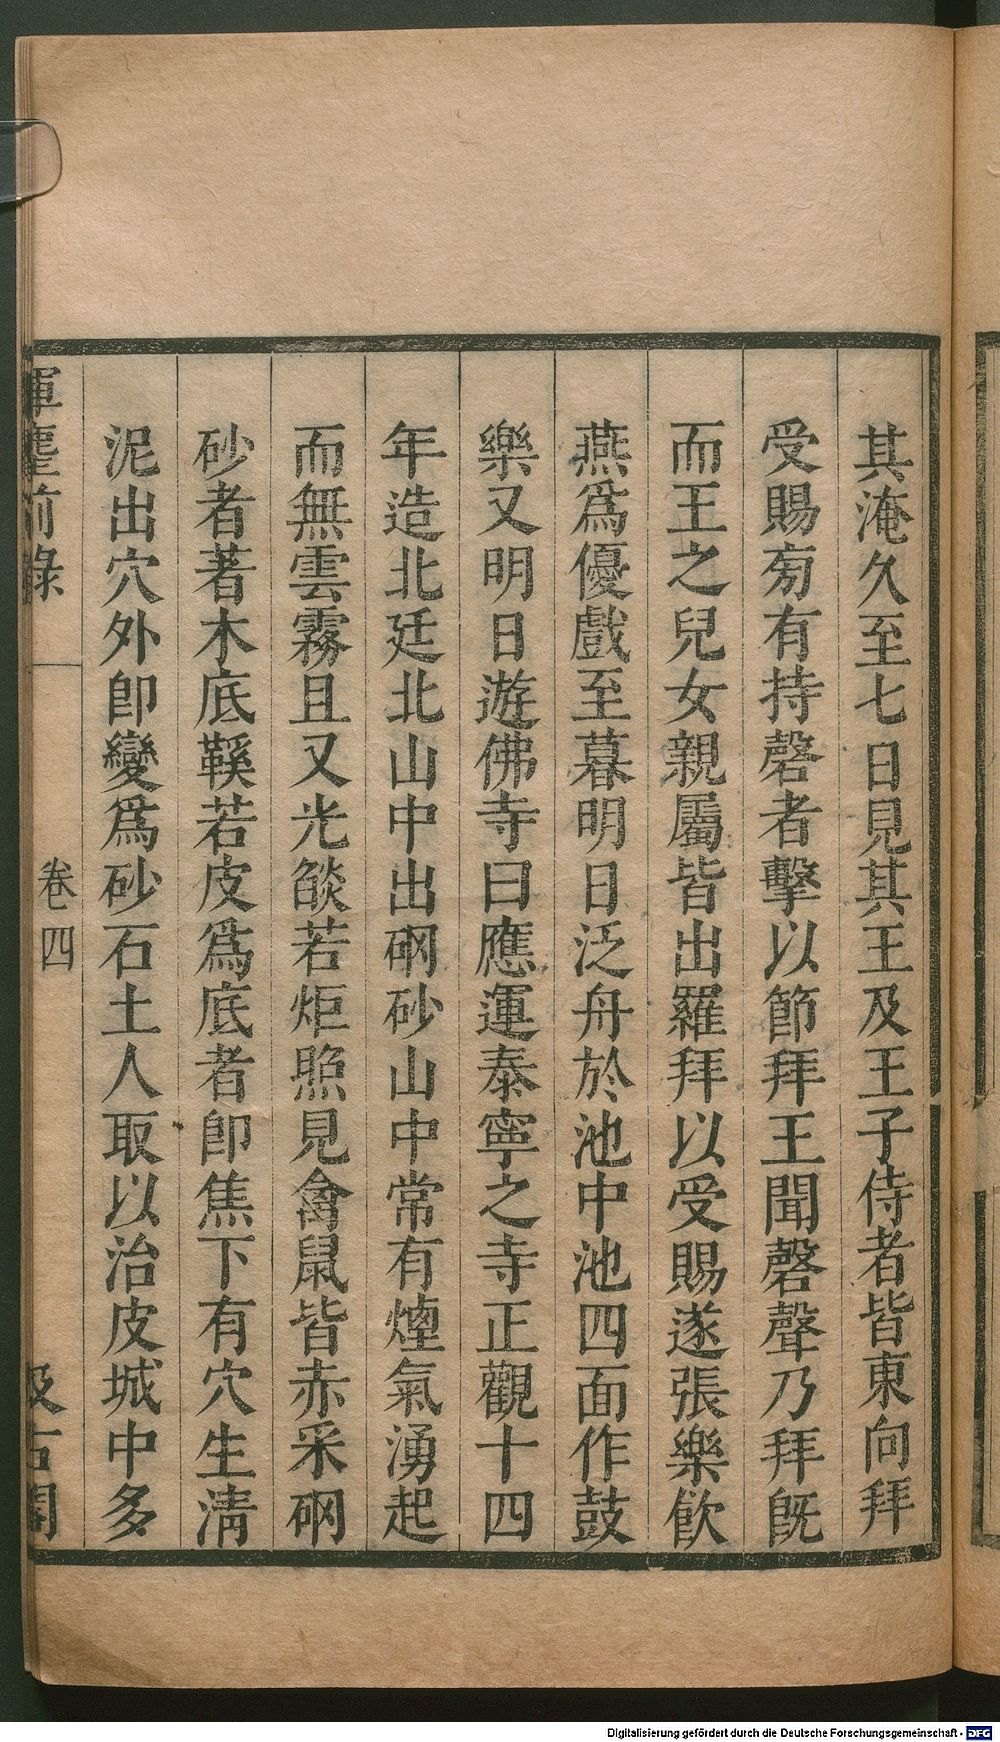 其淹久至七日見其王及王子侍者皆東向拜
受賜㫄有持磬者擊以節拜王聞磬聲乃拜旣
而王之兒女親屬皆出羅拜以受賜遂張樂飮
燕爲優戲至暮明日泛舟於池中池四面作鼓
樂又明日遊佛寺曰應運泰寧之寺正觀十四
年造北廷北山中出硇砂山中常有煙氣湧起
而無雲霧且又光燄若炬照見禽鼠皆赤采硇
砂者著木底鞵若皮爲底者卽焦下有穴生淸
泥出穴外卽變爲砂石土人取以治皮城中多
揮麈前錄
卷四
汲古閣
Digitalisierung gefördert durch die Deutsche Forschungsgemeinschaft - DFG